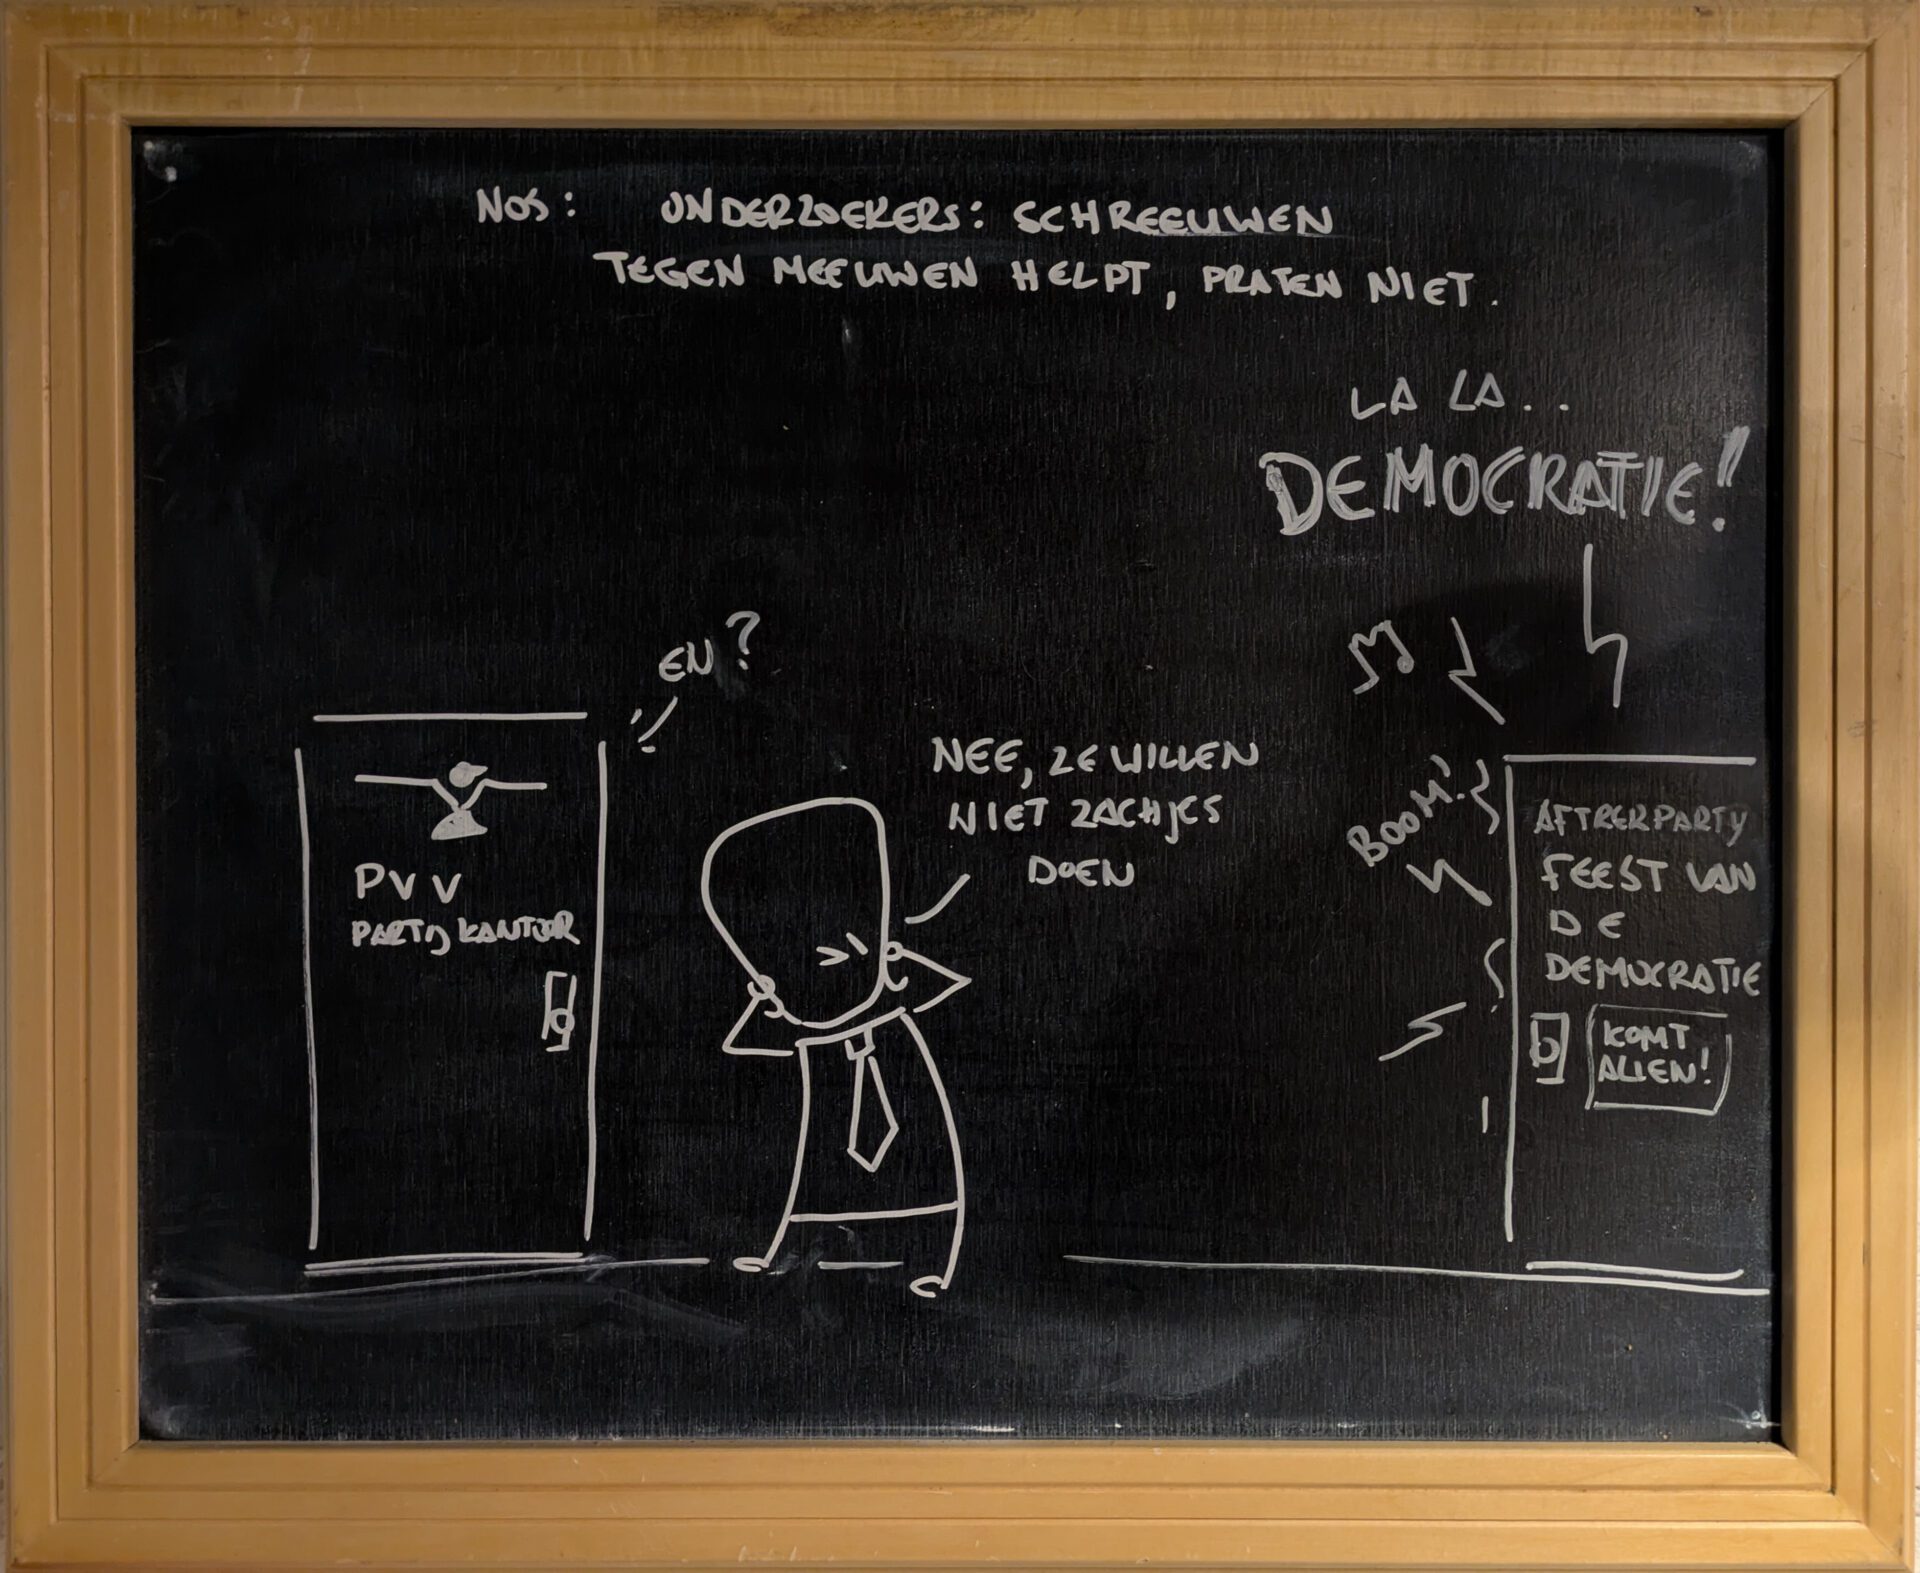 NOS: ONDERZOEKERS: SCHREEUWEN
TEGEN MEEUWEN HELPT, PRATEN NIET.
LA LA..
DEMOCRATIE!
EN?
NEE, ZE WILLEN
NIET ZACHJES
DOEN
BOOM!
PVV
PARTIJKANTOOR
AFTRERPARTY
FEEST VAN
DE
DEMOCRATIE
KOMT
ALLEN!